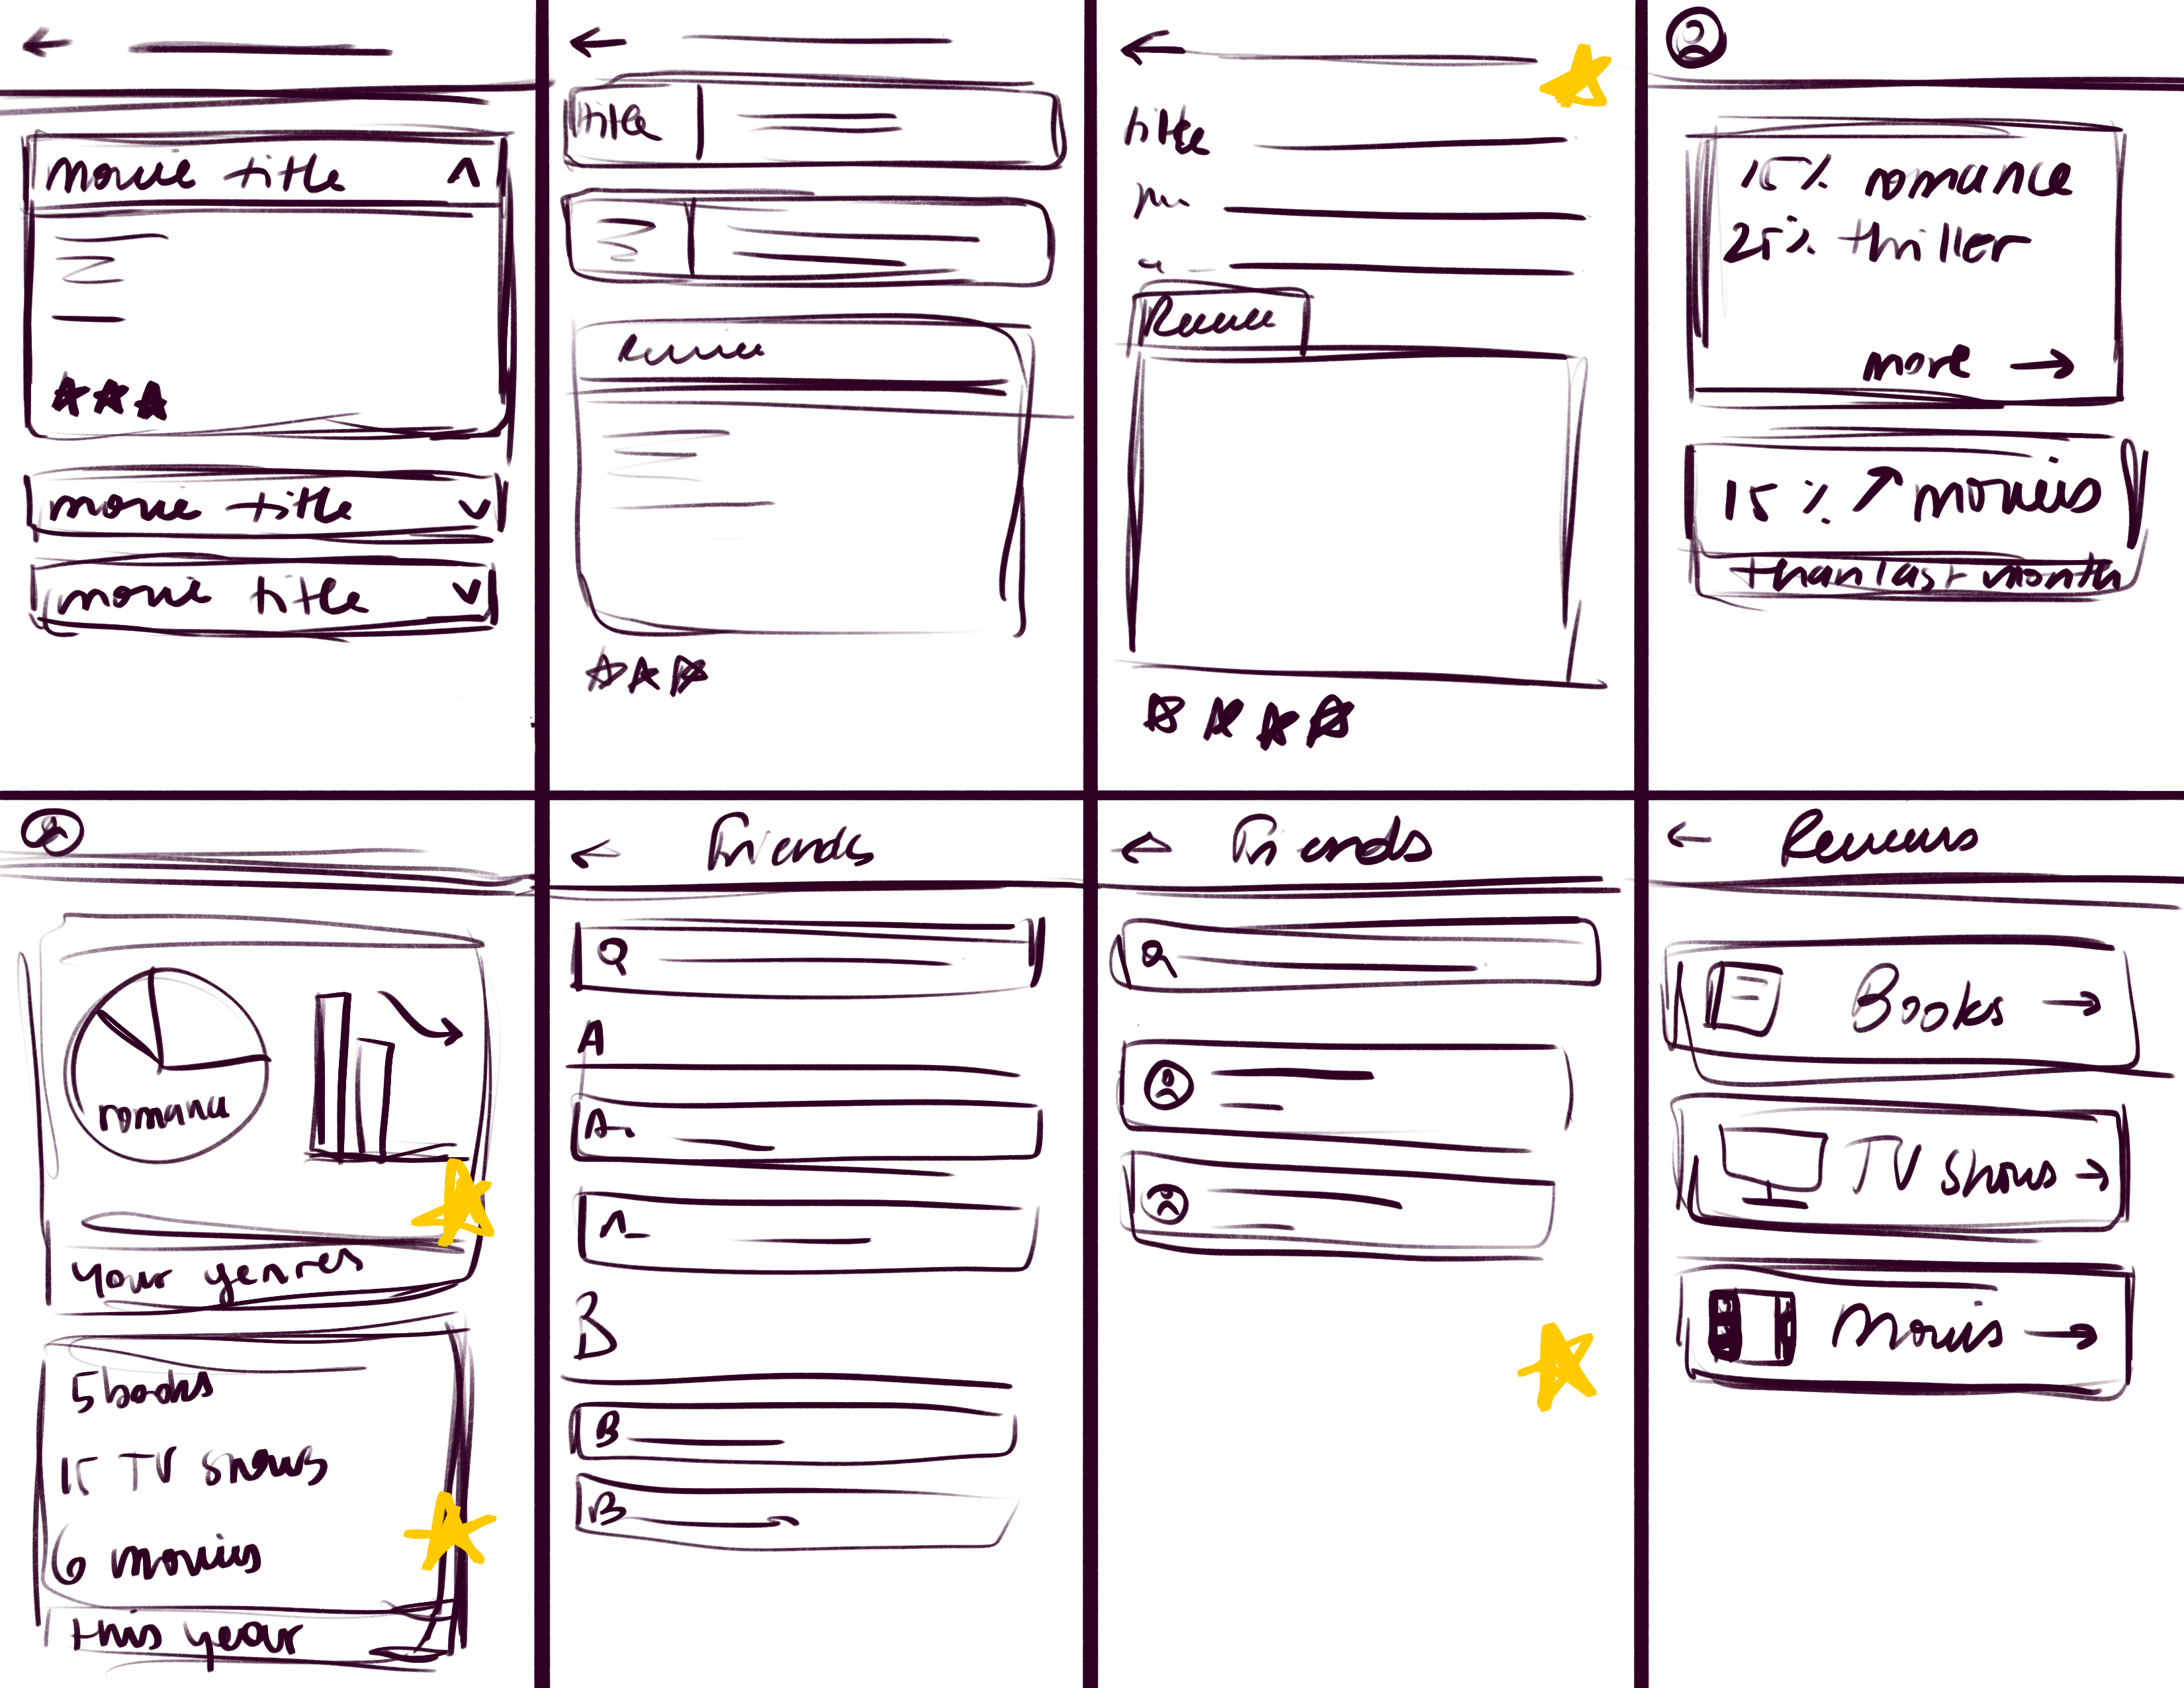 movie title
movie title
movie title
title
Review
title
Review
15% romance
25% thriller
more →
15% ↑ movies
than last month
romance
your genres
5 books
15 TV shows
6 movies
this year
Friends
A
A
B
B
B
Friends
Reviews
Books →
TV shows →
Movies →